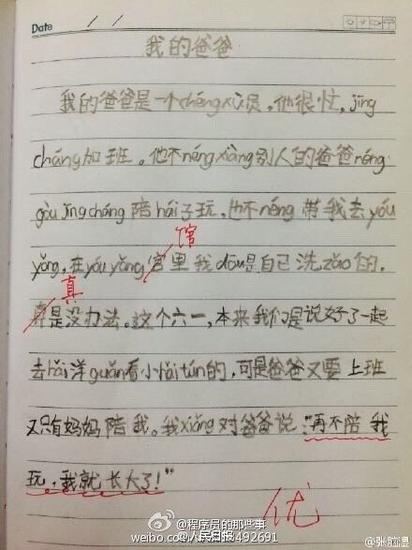 Date / /
我的爸爸
我的爸爸是一个chéng xù员，他很忙，jīng
cháng加班。他不néng xiàng别人的爸爸néng
gòu jīng cháng陪hái子玩，也不néng带我去yóu
馆
yǒng，在yóu yǒng官里我dōu是自己洗zǎo的，
真
真是没办法。这个六一，本来我们是说好了一起
去hǎi洋guǎn看小hǎi tún的，可是爸爸又要上班
又只有妈妈陪我。我xiǎng对爸爸说："再不陪我
玩，我就长大了！"
优
@程序员的那些事
@人民日报
weibo.com